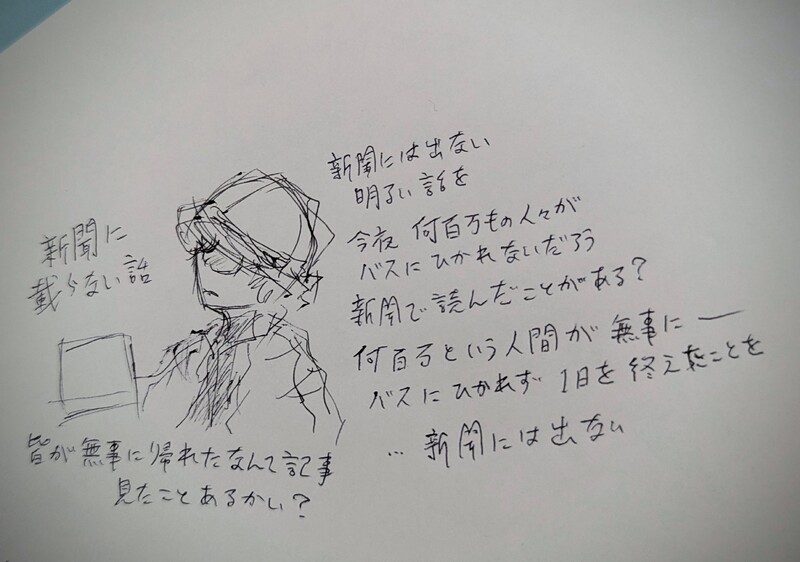 新聞に
載らない話
皆が無事に帰れたなんて記事
見たことあるかい？
新聞には出ない
明るい話を
今夜 何百万もの人々が
バスにひかれないだろう
新聞で読んだことがある？
何百万という人間が無事に―
バスにひかれず 1日を終えたことを
… 新聞には出ない